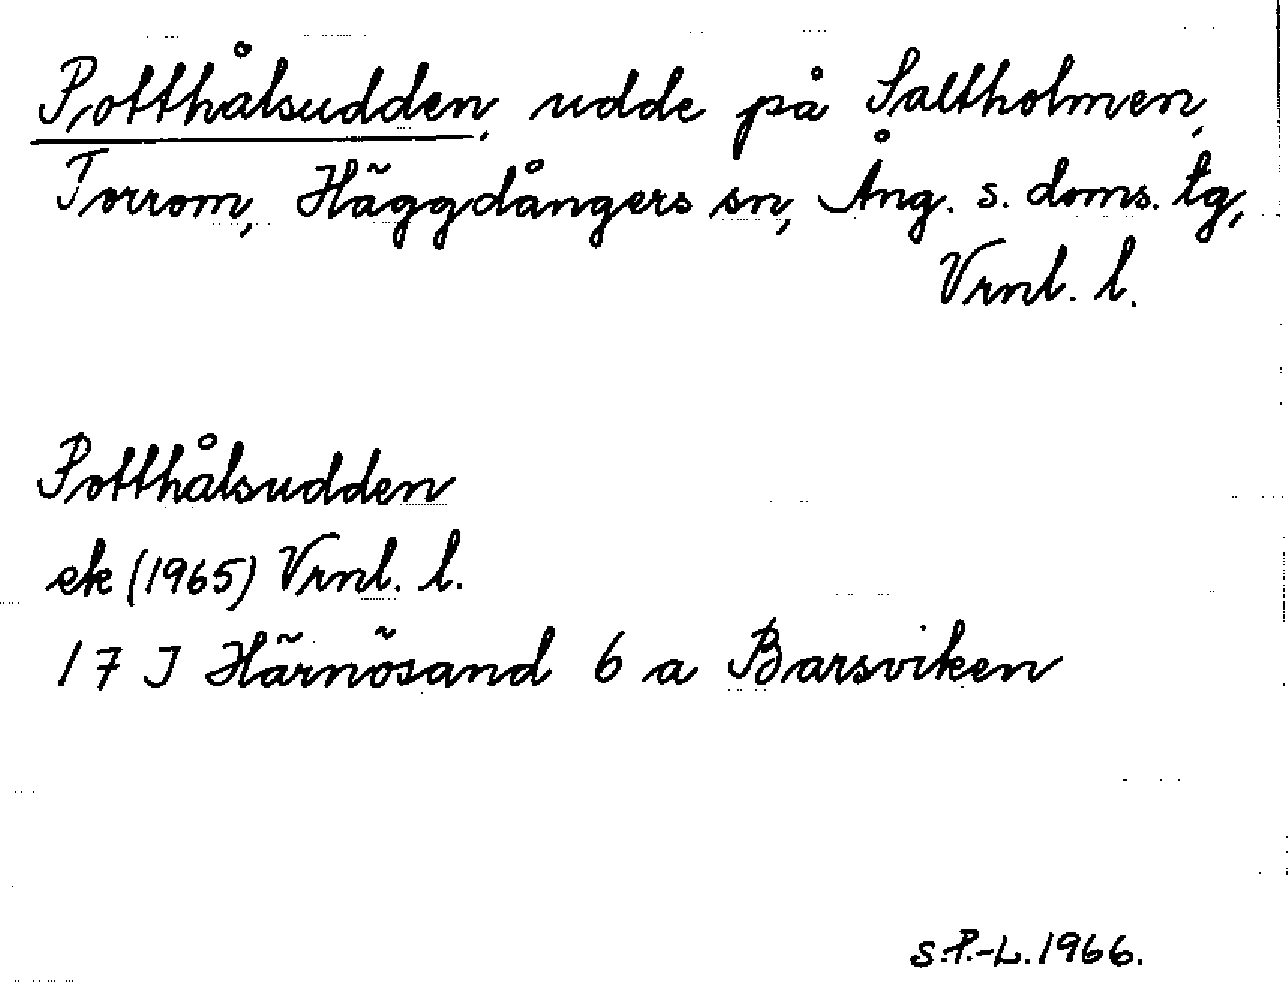 Potthålsudden, udde på Saltholmen,
Torrom, Häggdångers sn, Ång. s. doms. tg,
Vrnl. l.
Potthålsudden
ek (1965) Vrnl. l.
17 J Härnösand 6 a Barsviken
S.P.-L. 1966.